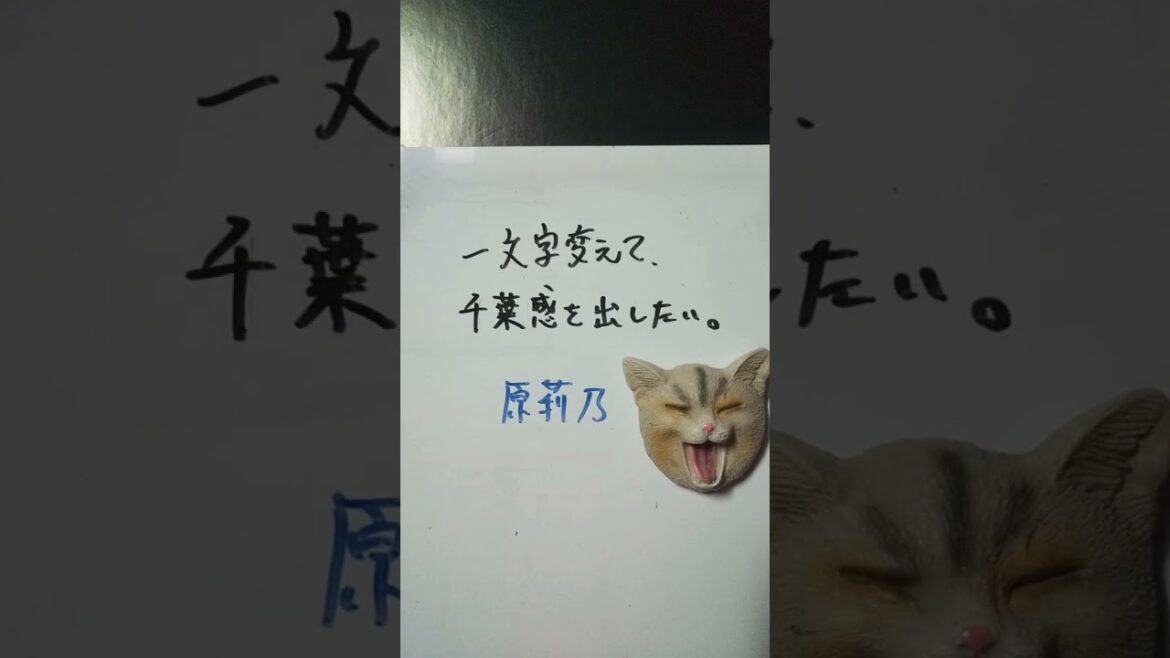 一文字変えて、
千葉感を出したい。
原莉乃